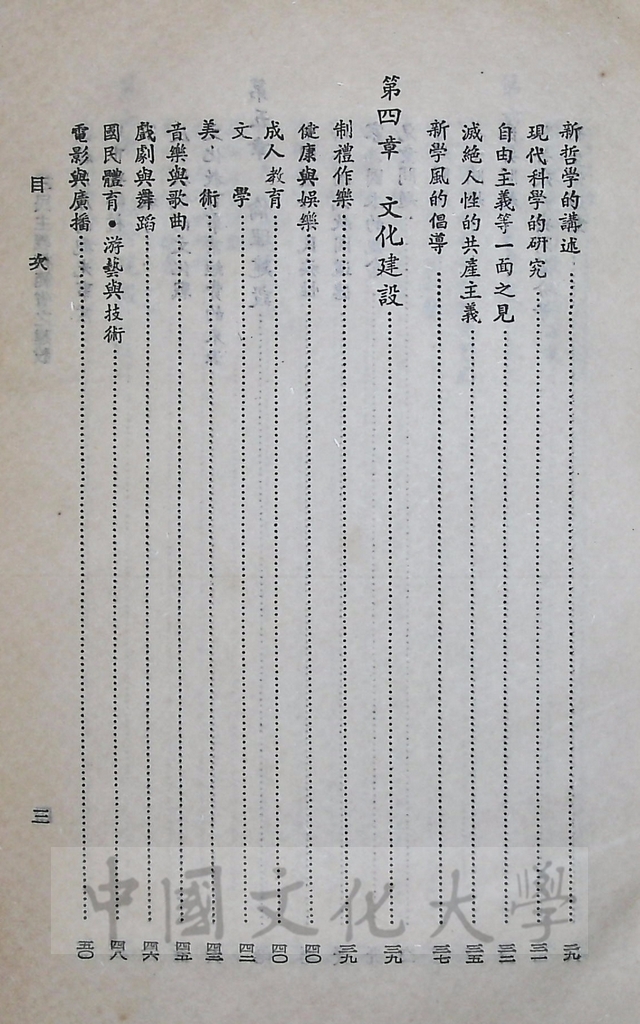 新哲學的講述…………二九
現代科學的研究…………三一
自由主義等一面之見…………三三
滅絕人性的共產主義…………三五
新學風的倡導…………三七
第四章　文化建設…………三九
制禮作樂…………三九
健康與娛樂…………四〇
成人教育…………四〇
文　學…………四二
美　術…………四三
音樂與歌曲…………四五
戲劇與舞蹈…………四六
國民體育•游藝與技術…………四八
電影與廣播…………五〇
目　次
三
中國文化大學